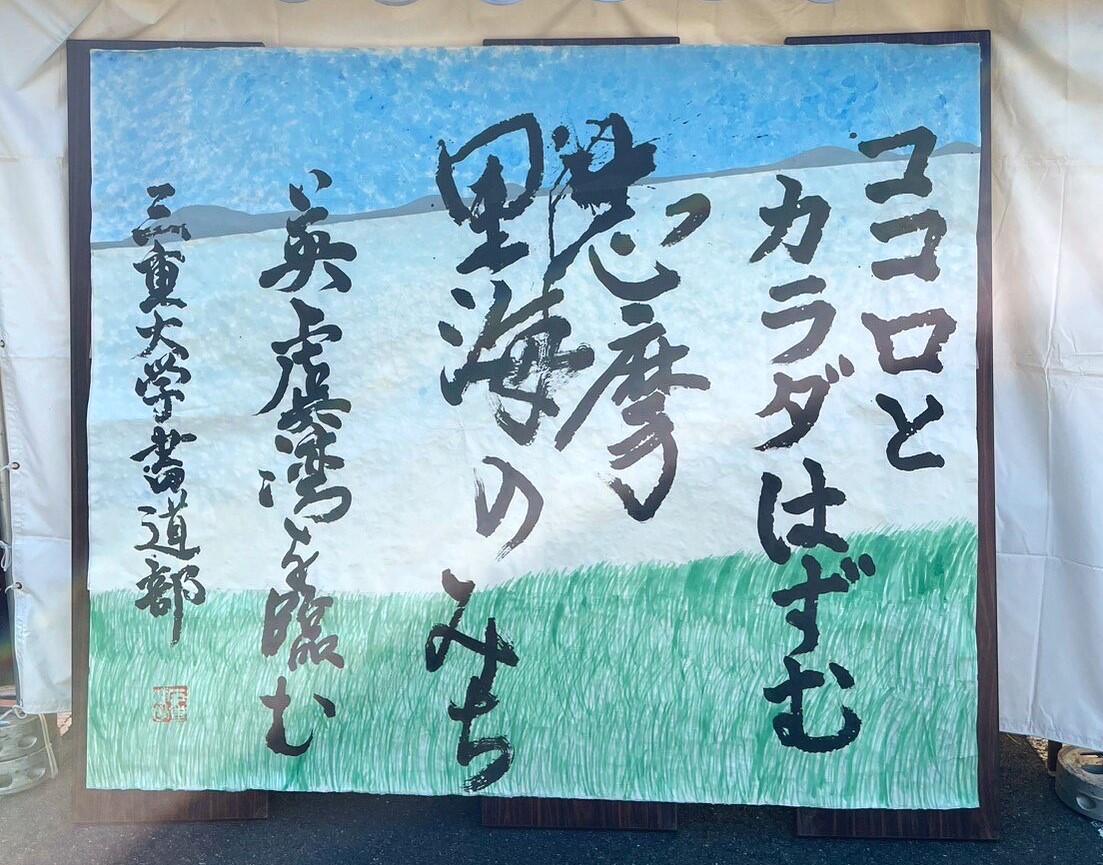 ココロと
カラダはずむ
志摩
里海のみち
英虞湾を臨む
三重大学書道部